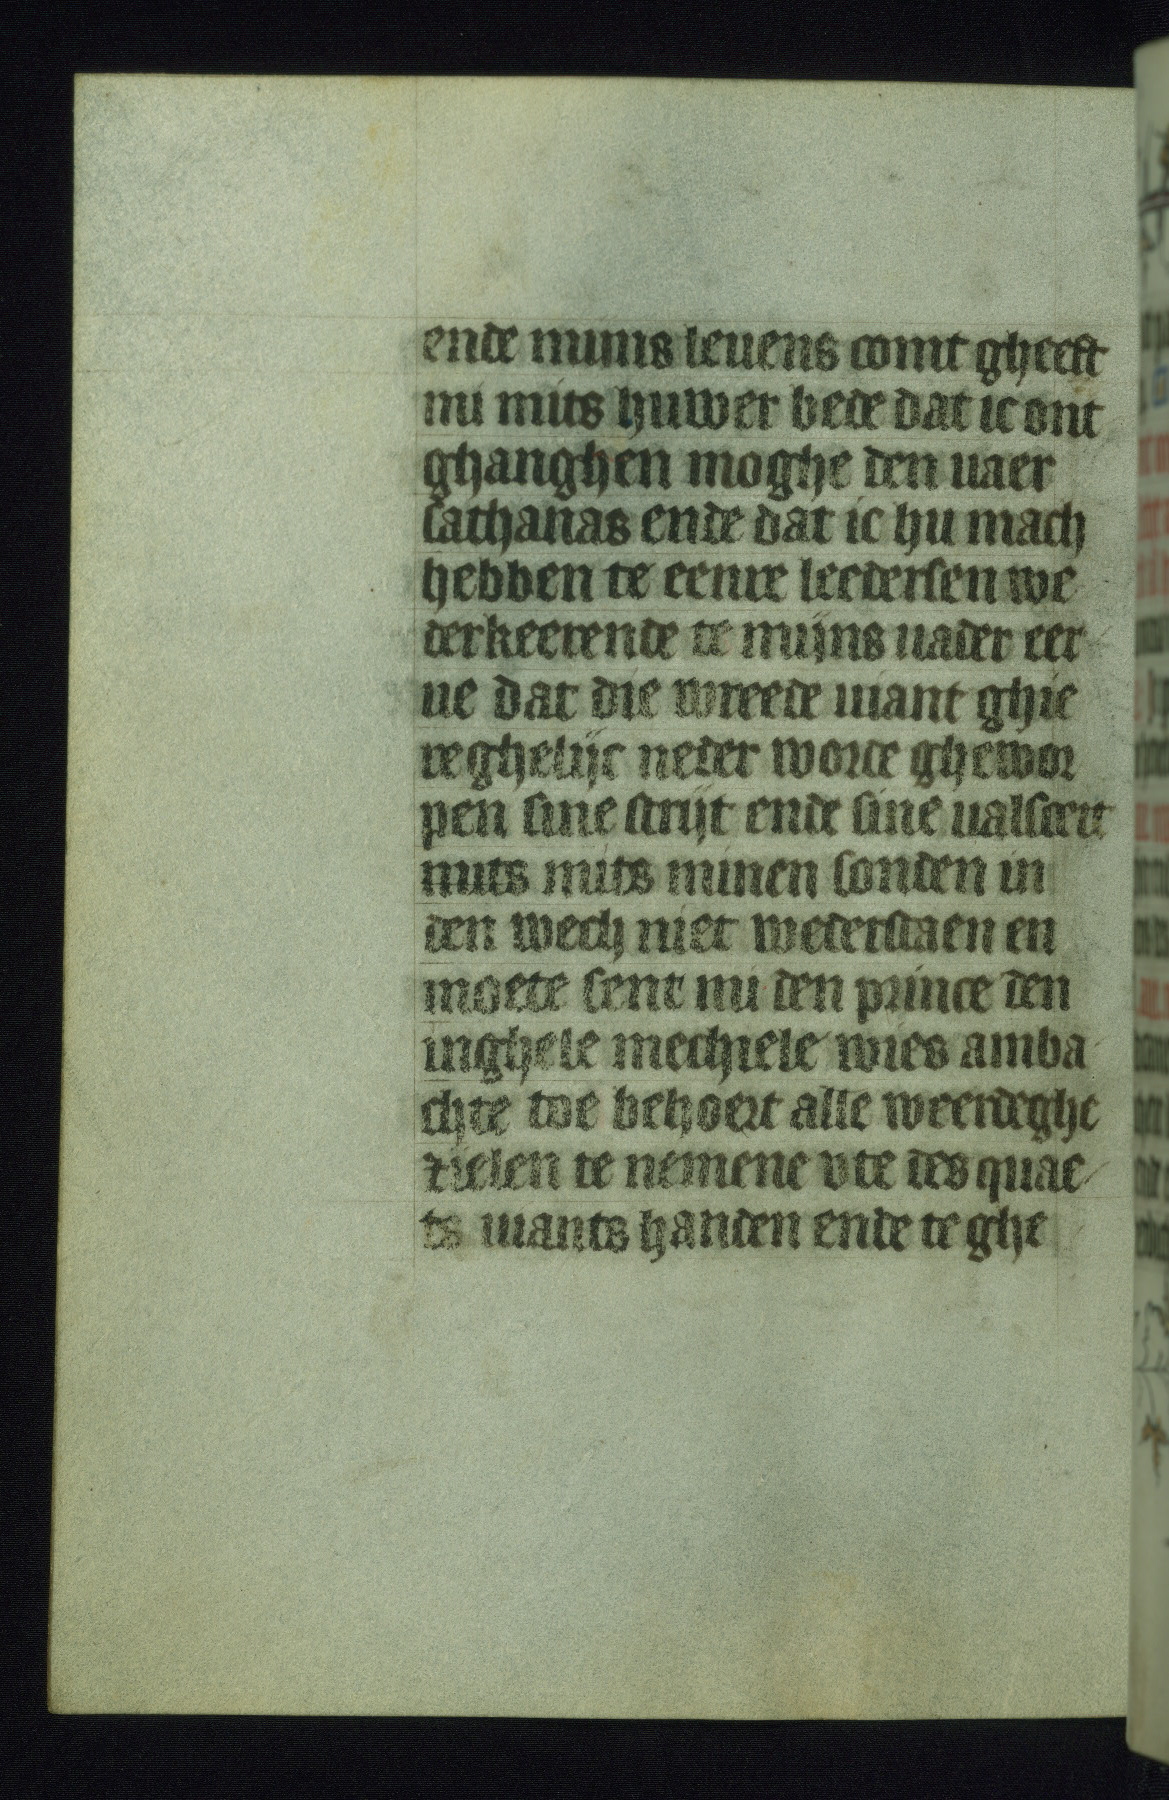 ende mijns leuens comt gheeft
mi mits huwer bede dat ic ont
ghanghen moghe den uaer
sathanas ende dat ic hu mach
hebben te eenre leedersen we
derkeerende te mijns uader eer
ue dat die wreede uiant ghie
reghelijc neder worde ghewor
pen sine strijt ende sine ualscheit
mits minen sonden in
den wech niet wederstaen en
moete sent mi den prince den
inghele mechiele wies amba
chte toe behoert alle weerdeghe
zielen te nemene vte des quae
ts uiants handen ende te ghe